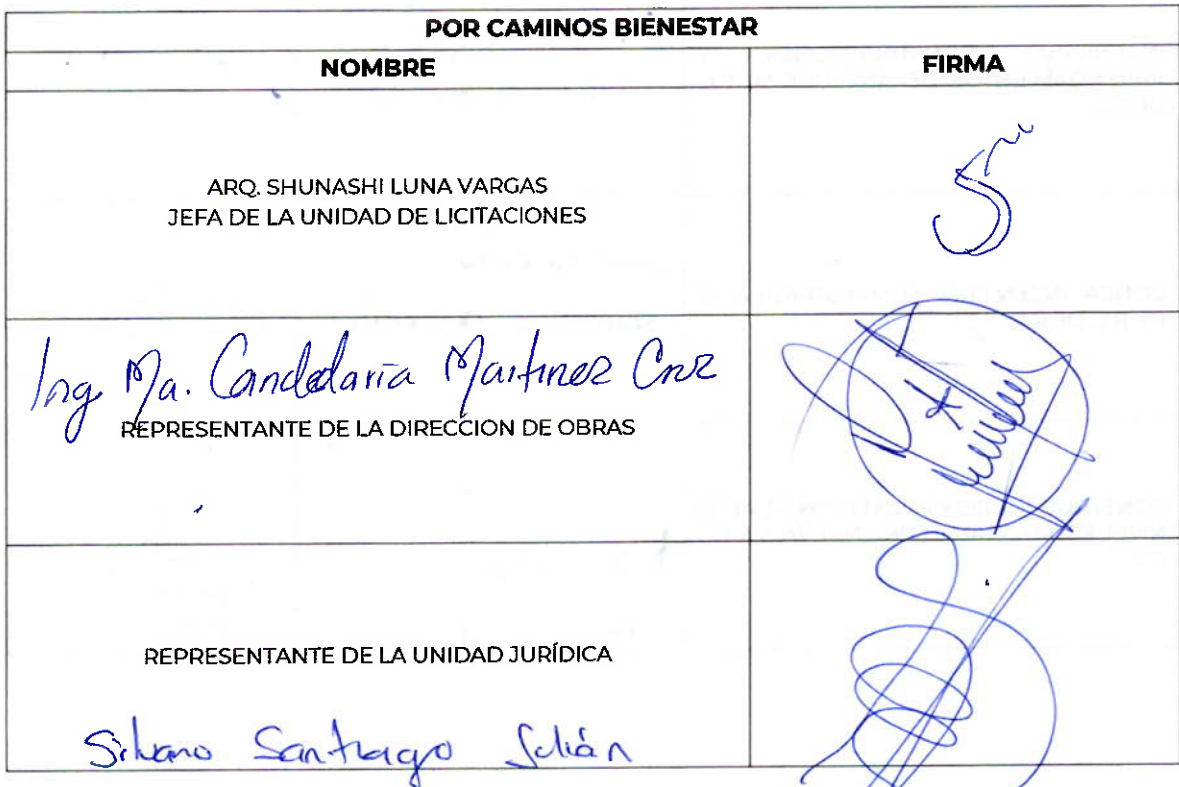 POR CAMINOS BIENESTAR
NOMBRE
FIRMA
ARQ. SHUNASHI LUNA VARGAS
JEFA DE LA UNIDAD DE LICITACIONES
Ing. Ma. Candelaria Martinez Cruz
REPRESENTANTE DE LA DIRECCION DE OBRAS
REPRESENTANTE DE LA UNIDAD JURÍDICA
Silvano Santiago Julián